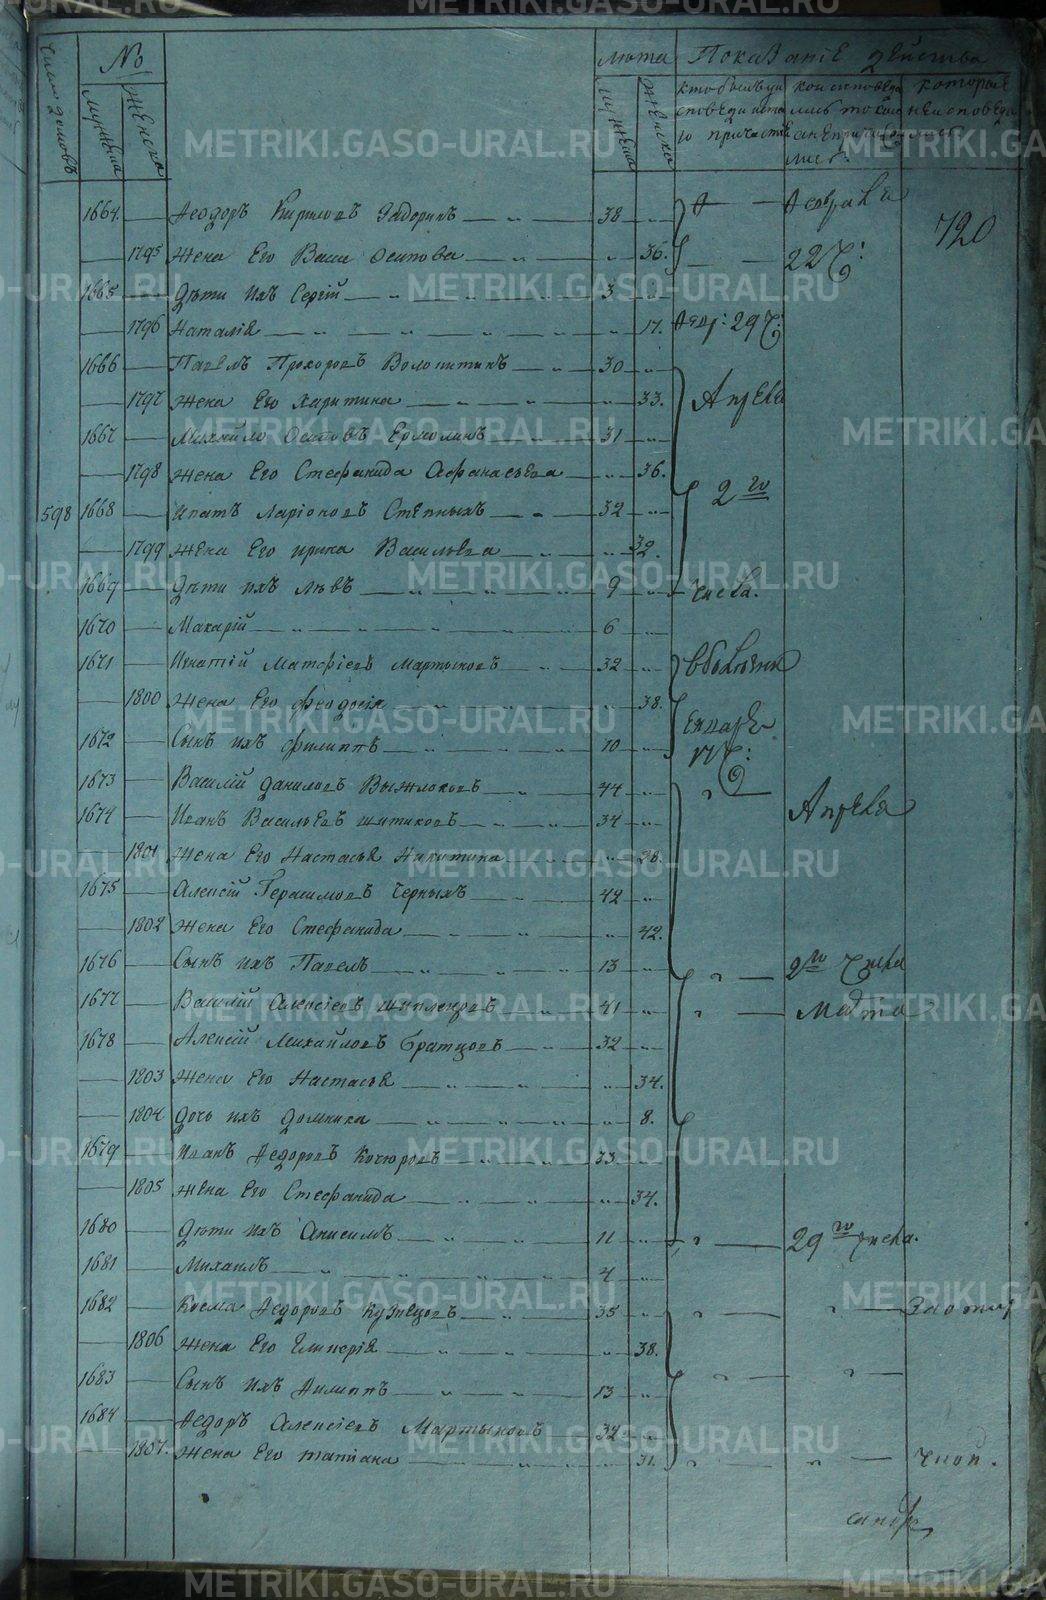 Число домовъ
№
мужеска
женска
Лѣта
мужеска
женска
Показаніе действа
кто былъ у исповеди и святаго причастія
кои исповедались токмо а не причащались
которые не исповедались
720
1664. Ѳеодоръ Кириловъ 38 Февраля
1795 Жена Его Васса Осипова 36. 22 Ч:
1665 Дѣти ихъ Сергій 3
1796 Наталія 17. 29 Ч:
1666 Павелъ Прохоровъ 30
1797 Жена Его Харитина 33. Апреля
1667 Михайло Осиповъ Ермолинъ 31
1798 Жена Его Стефанида Афанасьева 36.
598 1668 Ипатъ Ларіоновъ Степныхъ 32 2го
1799 Жена Его Ирина Васильева 32
1669 Дѣти ихъ Левъ 9 числа.
1670 Макарій 6
1671 Игнатій Матфіевъ Мартыновъ 32
1800 Жена Его Феодосія 38.
1672 Сынъ ихъ Филиппъ 10
1673 Василій Даниловъ 44
1674 Иванъ Васильевъ Шитиковъ 34 Апреля
1801 Жена Его Настасья Никитина 28.
1675 Алексій Герасимовъ Черныхъ 42
1802 Жена Его Стефанида 42.
1676 Сынъ ихъ Павелъ 13 2го числа
1677 Василій Алексіевъ 41 Марта
1678 Алексій Михайловъ Братцовъ 32
1803 Жена Его Настасья 34.
1804 Дочь ихъ Домника 8.
1679 Иванъ Федоровъ 33
1805 Жена Его Стефанида 34.
1680 Дѣти ихъ Анисимъ 11 29го числа.
1681 Михаилъ 4
1682 Косма Федоровъ Кузнецовъ 35
1806 Жена Его Гликерія 38.
1683 Сынъ ихъ Филиппъ 13
1684 Федоръ Алексіевъ Мартыновъ 32
1807. Жена Его Татіана 31.
METRIKI.GASO-URAL.RU